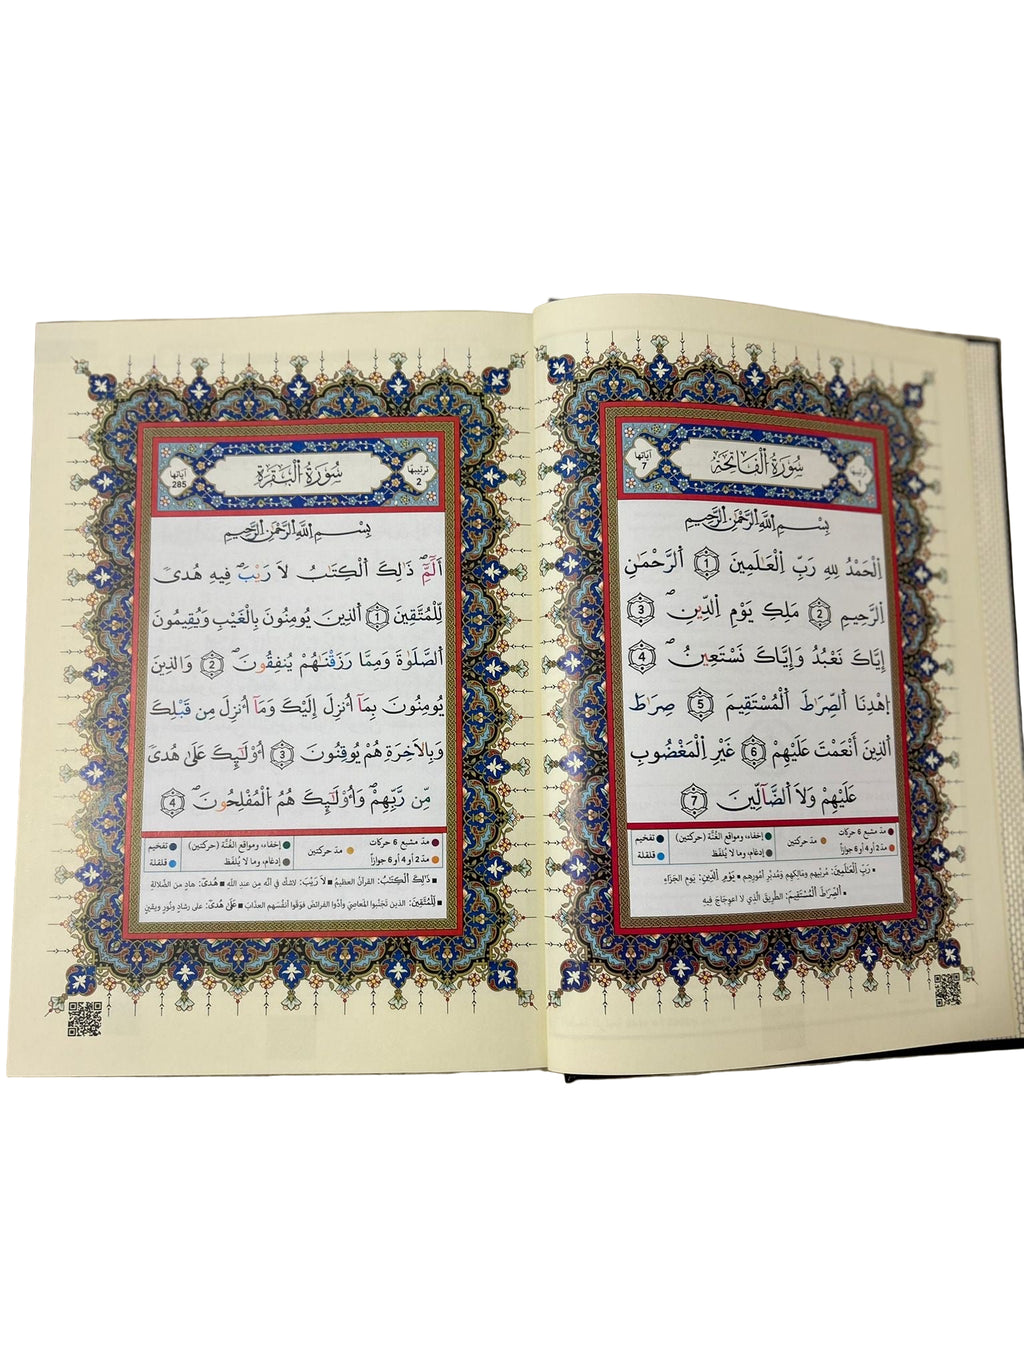 ترتيبها 1
سُورَةُ اُ۬لْفَاتِحَةِ
آياتها 7
بِسْمِ اِ۬للَّهِ اِ۬لرَّحْمَٰنِ اِ۬لرَّحِيمِ
اِ۬لْحَمْدُ لِلهِ رَبِّ اِ۬لْعَٰلَمِينَ 1 اَ۬لرَّحْمَٰنِ
اِ۬لرَّحِيمِ 2 مَلِكِ يَوْمِ اِ۬لدِّينِ 3
إِيَّاكَ نَعْبُدُ وَإِيَّاكَ نَسْتَعِينُ 4
اِهْدِنَا اَ۬لصِّرَٰطَ اَ۬لْمُسْتَقِيمَ 5 صِرَٰطَ
اَ۬لذِينَ أَنْعَمْتَ عَلَيْهِمْ 6 غَيْرِ اِ۬لْمَغْضُوبِ
عَلَيْهِمْ وَلَا اَ۬لضَّآلِّينَ 7
مدّ مشبع 6 حركات مدّ حركتين إخفاء، ومواقع الغُنَّة (حركتين) تفخيم
مدّ 2 أو 4 أو 6 جوازاً إدغام، وما لا يُلفَظ قلقلة
▪ رَبِّ اِ۬لْعَٰلَمِينَ: مُربِّيهم ومَالِكِهم ومُدبِّرِ أمُورِهم ▪ يَوْمِ اِ۬لدِّينِ: يَومِ الجَزَاء
▪ اَ۬لصِّرَٰطَ اَ۬لْمُسْتَقِيمَ: الطَّرِيق الَّذِي لا اعوِجَاجَ فِيهِ
ترتيبها 2
سُورَةُ اُ۬لْبَقَرَةِ
آياتها 285
بِسْمِ اِ۬للَّهِ اِ۬لرَّحْمَٰنِ اِ۬لرَّحِيمِ
أَلَٓمِّٓ ذَٰلِكَ اَ۬لْكِتَٰبُ لَا رَيْبَ فِيهِ هُدىٗ
لِّلْمُتَّقِينَ 1 اَ۬لذِينَ يُومِنُونَ بِالْغَيْبِ وَيُقِيمُونَ
اَ۬لصَّلَوٰةَ وَمِمَّا رَزَقْنَٰهُمْ يُنفِقُونَ 2 وَالذِينَ
يُومِنُونَ بِمَآ أُنزِلَ إِلَيْكَ وَمَآ أُنزِلَ مِن قَبْلِكَ
وَبِالَاخِرَةِ هُمْ يُوقِنُونَ 3 أُوْلَٰٓئِكَ عَلَىٰ هُدىٗ
مِّن رَّبِّهِمْ وَأُوْلَٰٓئِكَ هُمُ اُ۬لْمُفْلِحُونَ 4
مدّ مشبع 6 حركات مدّ حركتين إخفاء، ومواقع الغُنَّة (حركتين) تفخيم
مدّ 2 أو 4 أو 6 جوازاً إدغام، وما لا يُلفَظ قلقلة
▪ ذَٰلِكَ اَ۬لْكِتَٰبُ: القرآنُ العظيمُ ▪ لَا رَيْبَ: لاشكَّ في أنَّه مِن عندِ اللَّهِ ▪ هُدىٗ: هادٍ من الضَّلالةِ
▪ لِّلْمُتَّقِينَ: الذين تَجنَّبوا المَعاصِيَ وأدَّوا الفرائضَ فوَقَوا أنفُسَهم العذابَ ▪ عَلَىٰ هُدىٗ: على رشادٍ ونُورٍ ويقينٍ